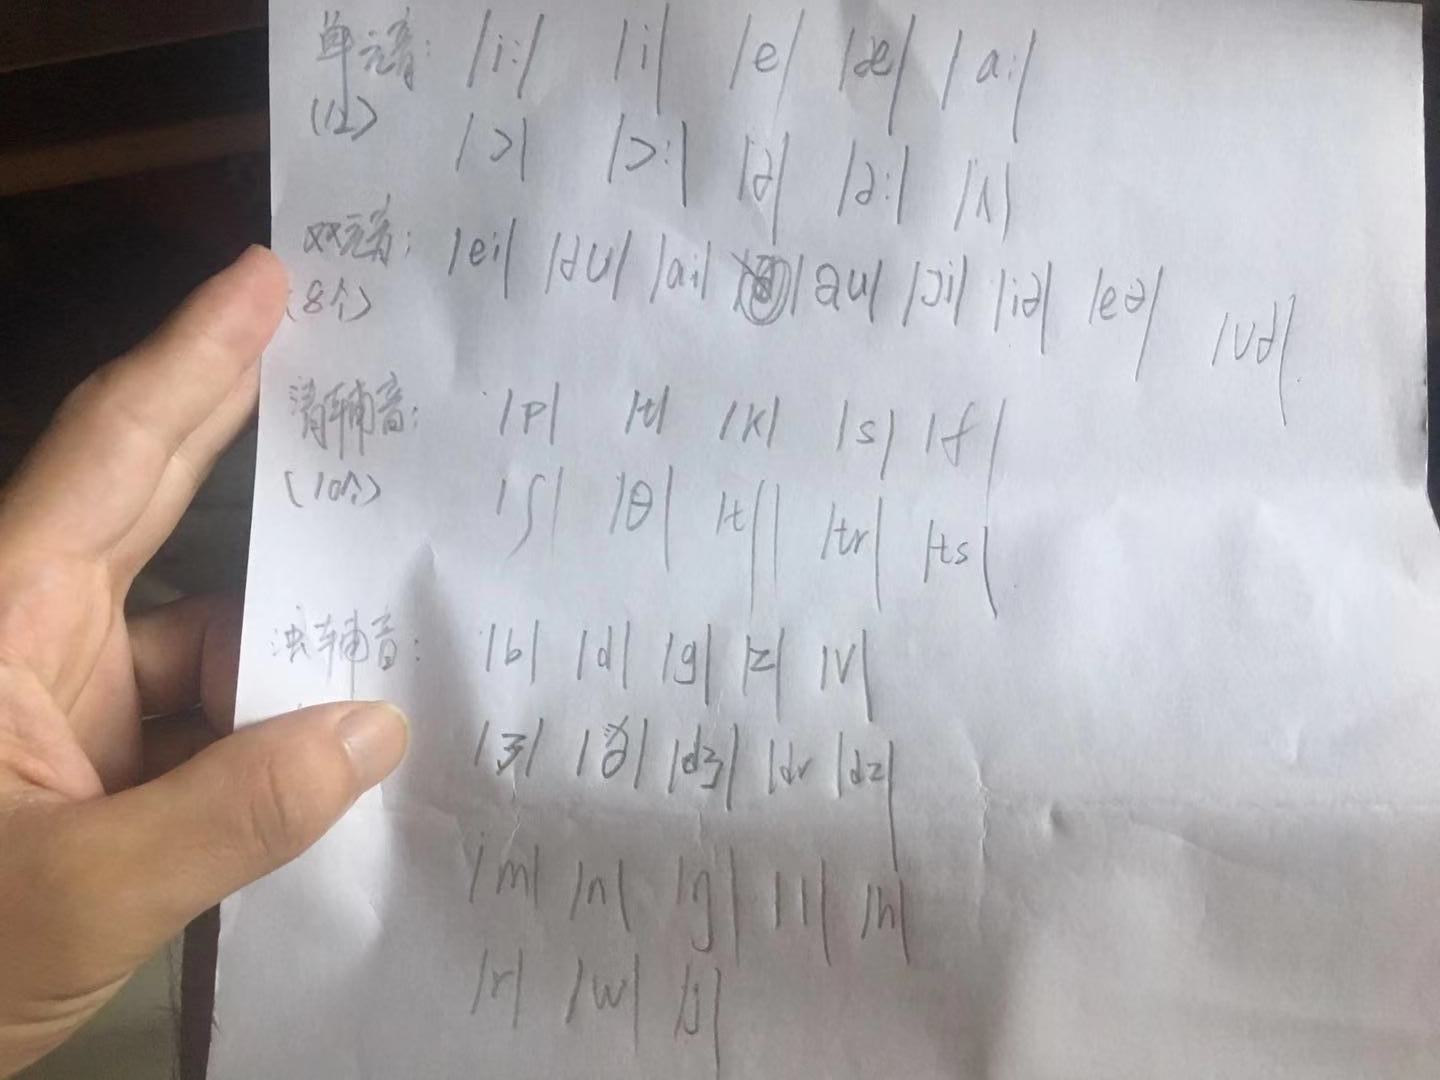 单元音: /i:/ /i/ /e/ /æ/ /a:/
(12) /ɔ/ /ɔ:/ /ə/ /ə:/ /ʌ/
双元音: /ei/ /əu/ /ai/ /au/ /ɔi/ /iə/ /eə/ /uə/
(8个)
清辅音: /p/ /t/ /k/ /s/ /f/
(10个) /ʃ/ /θ/ /tʃ/ /tr/ /ts/
浊辅音: /b/ /d/ /g/ /z/ /v/
/ʒ/ /ð/ /dʒ/ /dr/ /dz/
/m/ /n/ /ŋ/ /l/ /h/
/r/ /w/ /j/